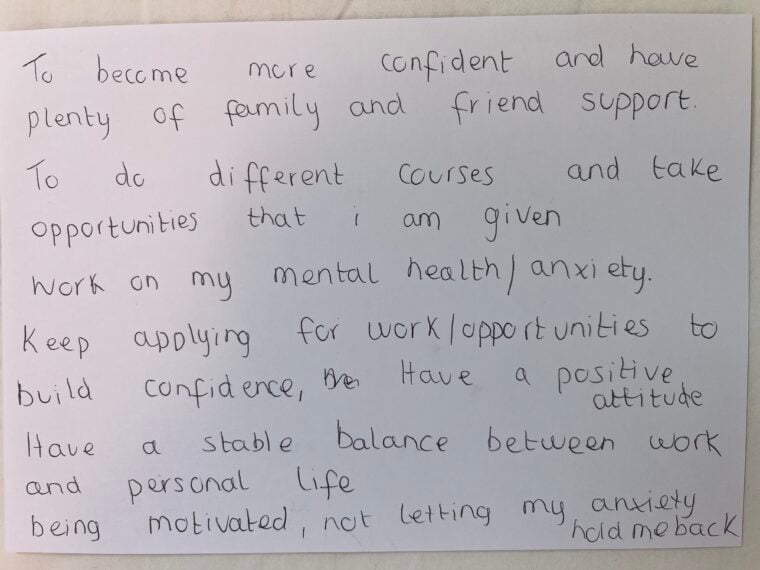 To become more confident and have
plenty of family and friend support.
To do different courses and take
opportunities that i am given
work on my mental health/anxiety.
Keep applying for work/opportunities to
build confidence, Have a positive
attitude
Have a stable balance between work
and personal life
being motivated, not letting my anxiety
hold me back